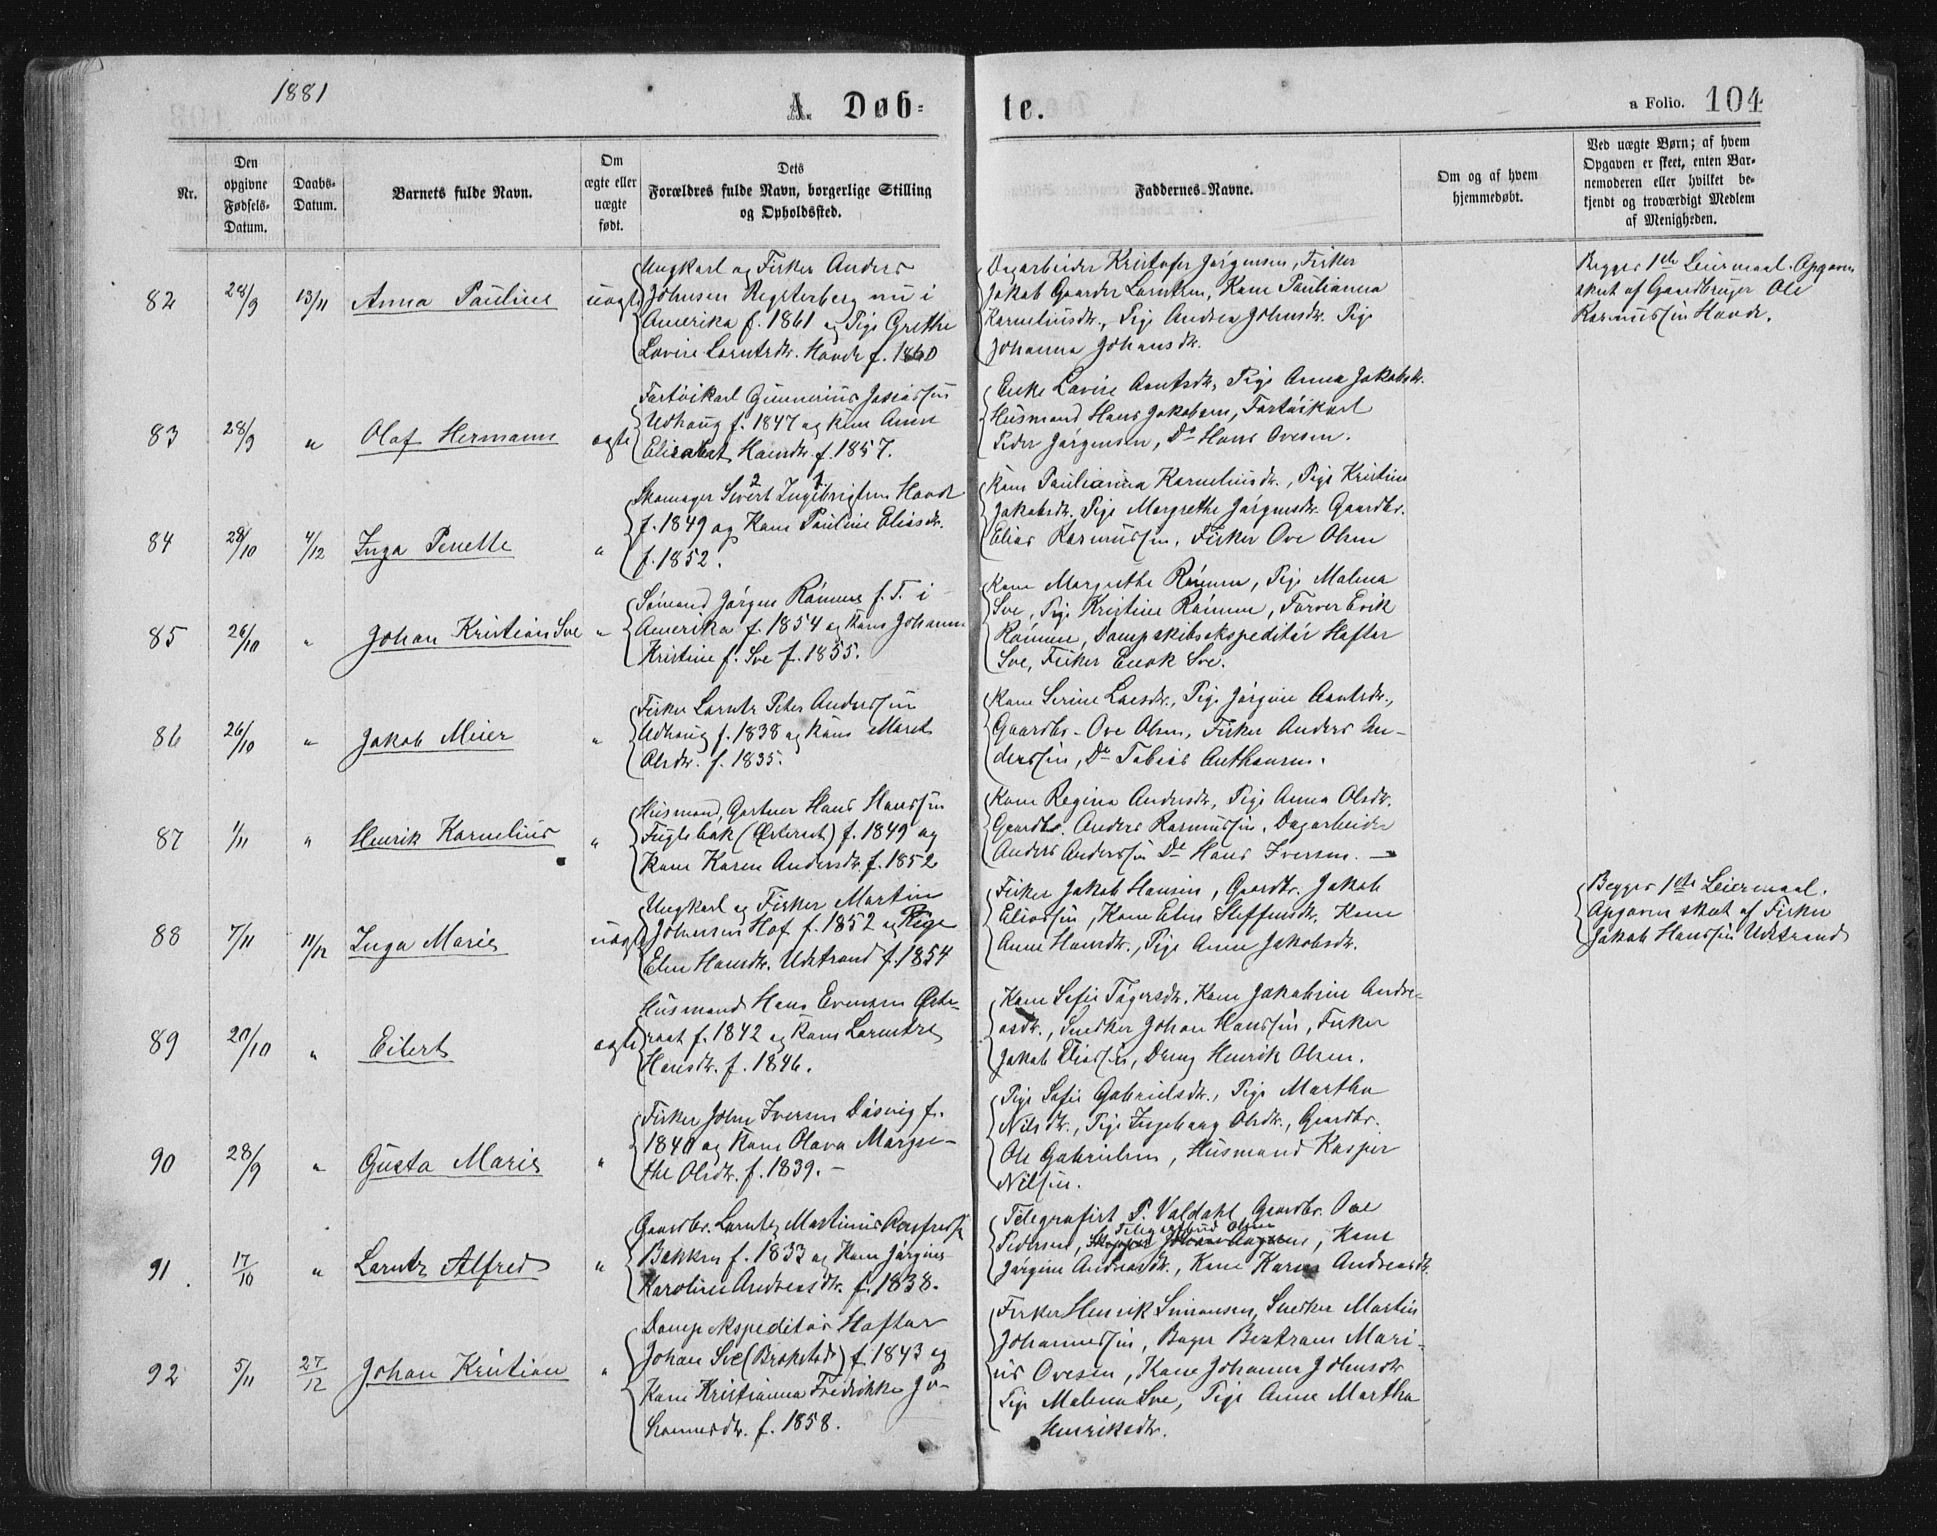 1881
A. Døb-
te.
a Folio. 104
Nr.
Den
opgivne
Fødsels-
Datum.
Daabs-
Datum.
Barnets fulde Navn.
Om
ægte eller
uægte
født.
Dets
Forældres fulde Navn, borgerlige Stilling
og Opholdssted.
Faddernes Navne.
Om og af hvem
hjemmedøbt.
Ved uægte Børn; af hvem
Opgaven er skeet, enten Bar-
nemoderen eller hvilket be-
kjendt og troværdigt Medlem
af Menigheden.
82
28/9
13/11
Anna Pauline
uægte
Ungkarl og Fisker Anders
Johnsen nu i
Amerika f. 1861 og Pige Grethe
Lovise Larntsdr. Hovde f. 1860
Dagarbeider Kristofer Jørgensen, Fisker
Jakob Gaarder Larntsen, Kone Paulianna
Korneliusdr., Pige Andrea Johnsdr. Pige
Johanna Johansdr.
Begges 1ste Leiermaal. Opgaven
skeet af Gaardbruger Ole
Rasmussen Hovde.
83
28/9
"
Olaf Hermann
ægte
Fartøikarl Gunnerius
Udhaug f. 1847 og Kone Anne
Elisabet Hansdr. f. 1857.
Enke Lovise Arntsdr., Pige Anna Jakobsdr.
Husmand Hans Jakobsen, Fartøikarl
Peder Jørgensen, Do Hans Ovesen.
84
28/10
4/12
Inga Penette
"
Skomager Sivert 2 Ingebrigtsen 1 Hovde
f. 1849 og Kone Pauline Eliasdr.
f. 1852.
Kone Paulianna Korneliusdr., Pige Kristine
Jakobsdr. Pige Margrethe Jørgensdr. Gaardbr.
Elias Rasmussen, Fisker Ove Olsen
85
26/10
"
Johan Kristian Sve
"
Sømand Jørgen Rømme f. T. i
Amerika f. 1854 og Kone Johanne
Kristine f. Sve f. 1855.
Kone Margrethe Rømme, Pige Malena
Sve, Pige Kristine Rømme, Farver Erik
Rømme, Dampskibsekspeditør Haftor
Sve, Fisker Enok Sve.
86
26/10
"
Jakob Meier
"
Fisker Larntz Peter Anderssen
Udhaug f. 1838 og Kone Maret
Olsdr. f. 1835.
Kone Serine Larsdr., Pige Jørgine Arntsdr.,
Gaardbr. Ove Olsen, Fisker Anders An-
derssen, Do Tobias Anthonsen.
87
1/11
"
Henrik Kornelius
"
Husmand, Gartner Hans Hanssen
Fuglebak (Østeraat) f. 1849 og
Kone Karen Andersdr. f. 1852
Kone Regina Andersdr., Pige Anna Olsdr.
Gaardbr. Anders Rasmussen, Dagarbeider
Anders Anderssen Do Hans Iversen. —
88
7/11
11/12
Inga Marie
uægte
Ungkarl og Fisker Martin
Johnesen Hof f. 1852 og Pige
Elen Hansdr. Udstrand f. 1854
Fisker Jakob Hansen, Gaardbr. Jakob
Eliassen, Kone Elen Steffensdr. Kone
Anne Hansdr., Pige Anne Jakobsdr.
Begges 1ste Leiermaal.
Opgaven skeet af Fisker
Jakob Hanssen Udstrand
89
20/10
"
Eilert
ægte
Husmand Hans Evensen Øste-
raat f. 1842 og Kone Larntze
Hansdr. f. 1846.
Kone Sofie Tøgersdr. Kone Jakobine Andre-
asdr., Snedker Johan Hanssen, Fisker
Jakob Eliassen, Dreng Henrik Olsen.
90
28/9
"
Gusta Marie
"
Fisker John Iversen Døsvig f.
1840 og Kone Olava Margre-
the Olsdr. f. 1839. —
Pige Sofie Gabrielsdr., Pige Martha
Nilsdr., Pige Ingeborg Olsdr., Gaardbr.
Ole Gabrielsen, Husmand Kasper
Nilsen.
91.
17/10
"
Larntz Alfred
"
Gaardbr. Larntz Martinus
Bakken f. 1833 og Kone Jørgine
Karoline Andreasdr. f. 1838.
Telegrafist P. Valdahl, Gaardbr. Ove
Pedersen, Telegrafbud Olsen, Kone
Jørgine Andreasdr., Kone Karen Andreasdr.
92
5/11
27/12
Johan Kristian
"
Dampekspeditør Haftor
Johan Sve (Brekstad) f. 1843 og
Kone Kristianna Fredrikke Jo-
hannesdr. f. 1858.
Fisker Henrik Simonsen, Snedker Martin
Johannessen, Bager Bertram Mari-
us Ovesen, Kone Johanna Johnsdr
Pige Malena Sve, Pige Anne Martha
Henriksdr.